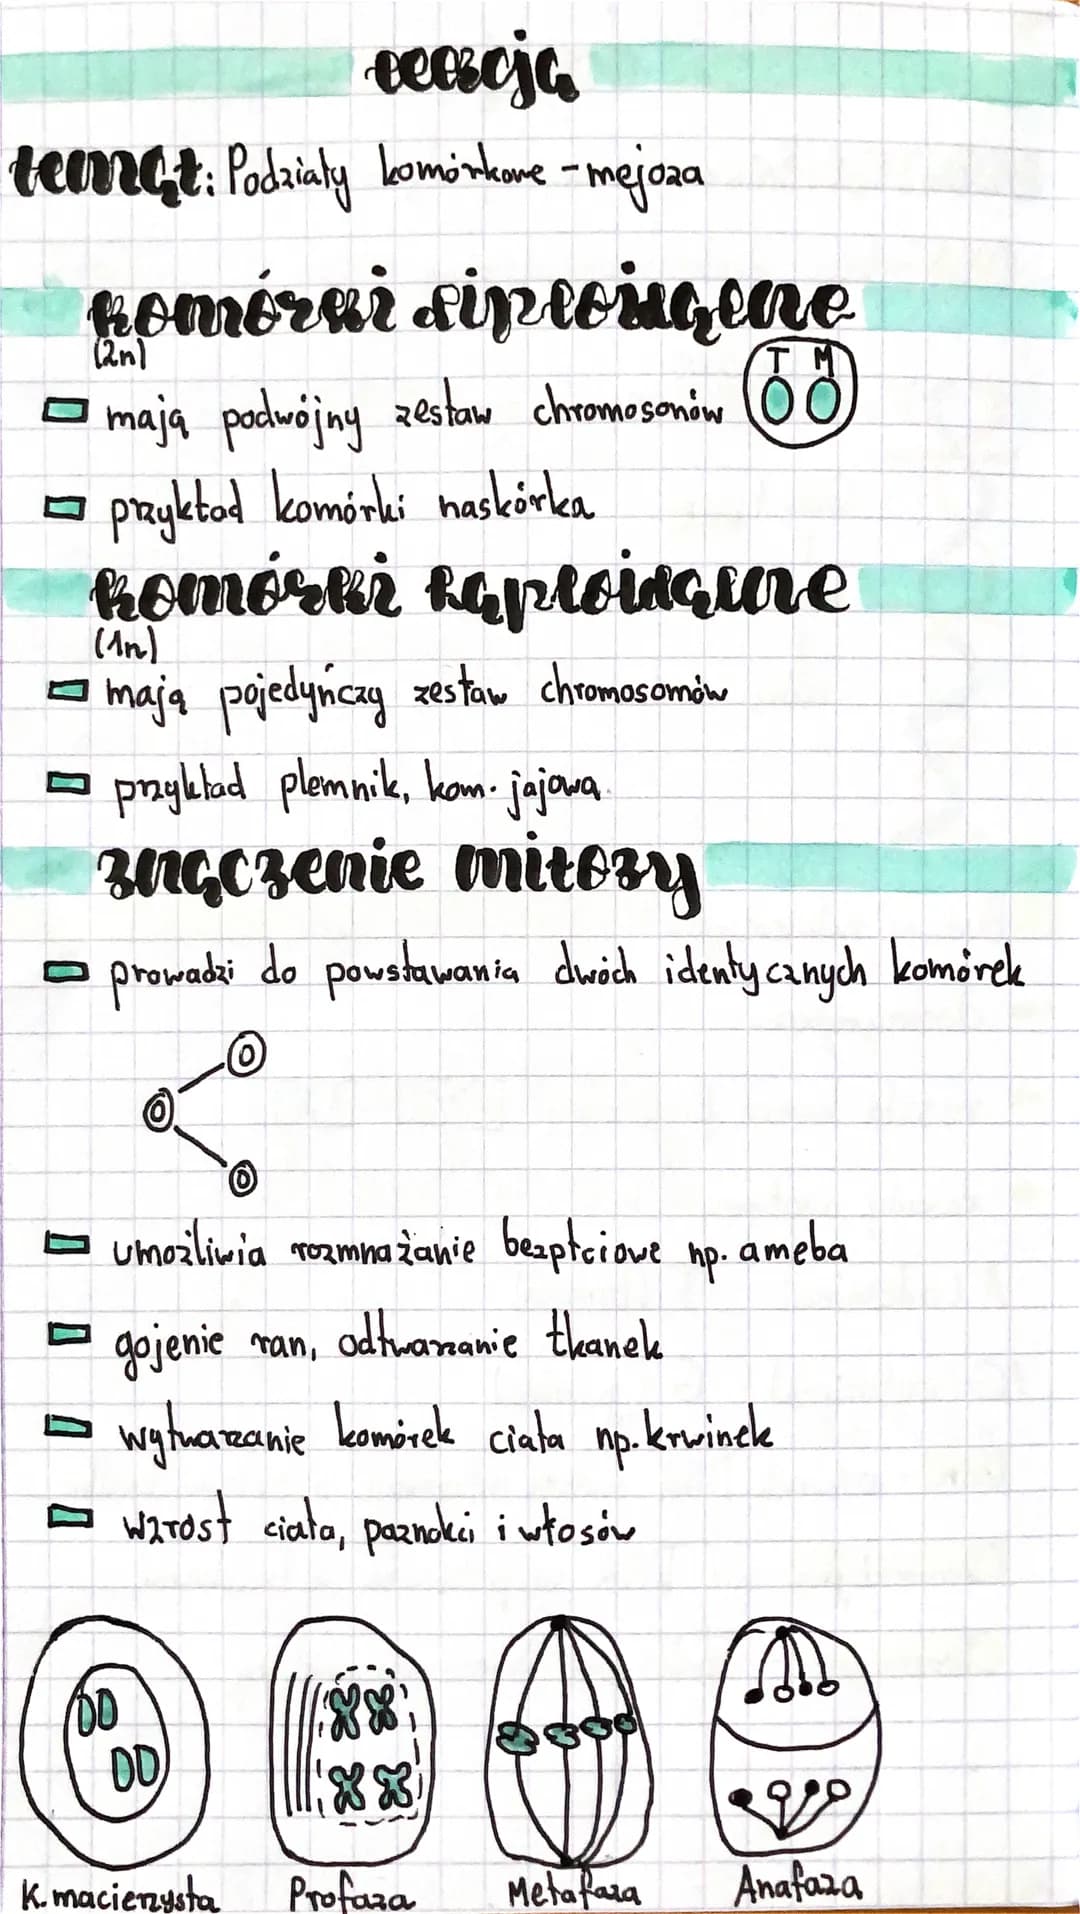 lekcja
temat: Podziały komórkowe - mejoza
komórki diploidalne
(2n)
T M
mają podwójny zestaw chromosonów
przykład komórki naskórka
komórki haploidalne
(1n)
mają pojedyńczy zestaw chromosomów
przykład plemnik, kom. jajowa
znaczenie mitozy
prowadzi do powstawania dwóch identycznych komórek
umożliwia rozmnażanie bezpłciowe np. ameba
gojenie ran, odtwarzanie tkanek
wytwarzanie komórek ciała np. krwinek
wzrost ciała, paznokci i włosów
K. macierzysta Profaza Metafaza Anafaza